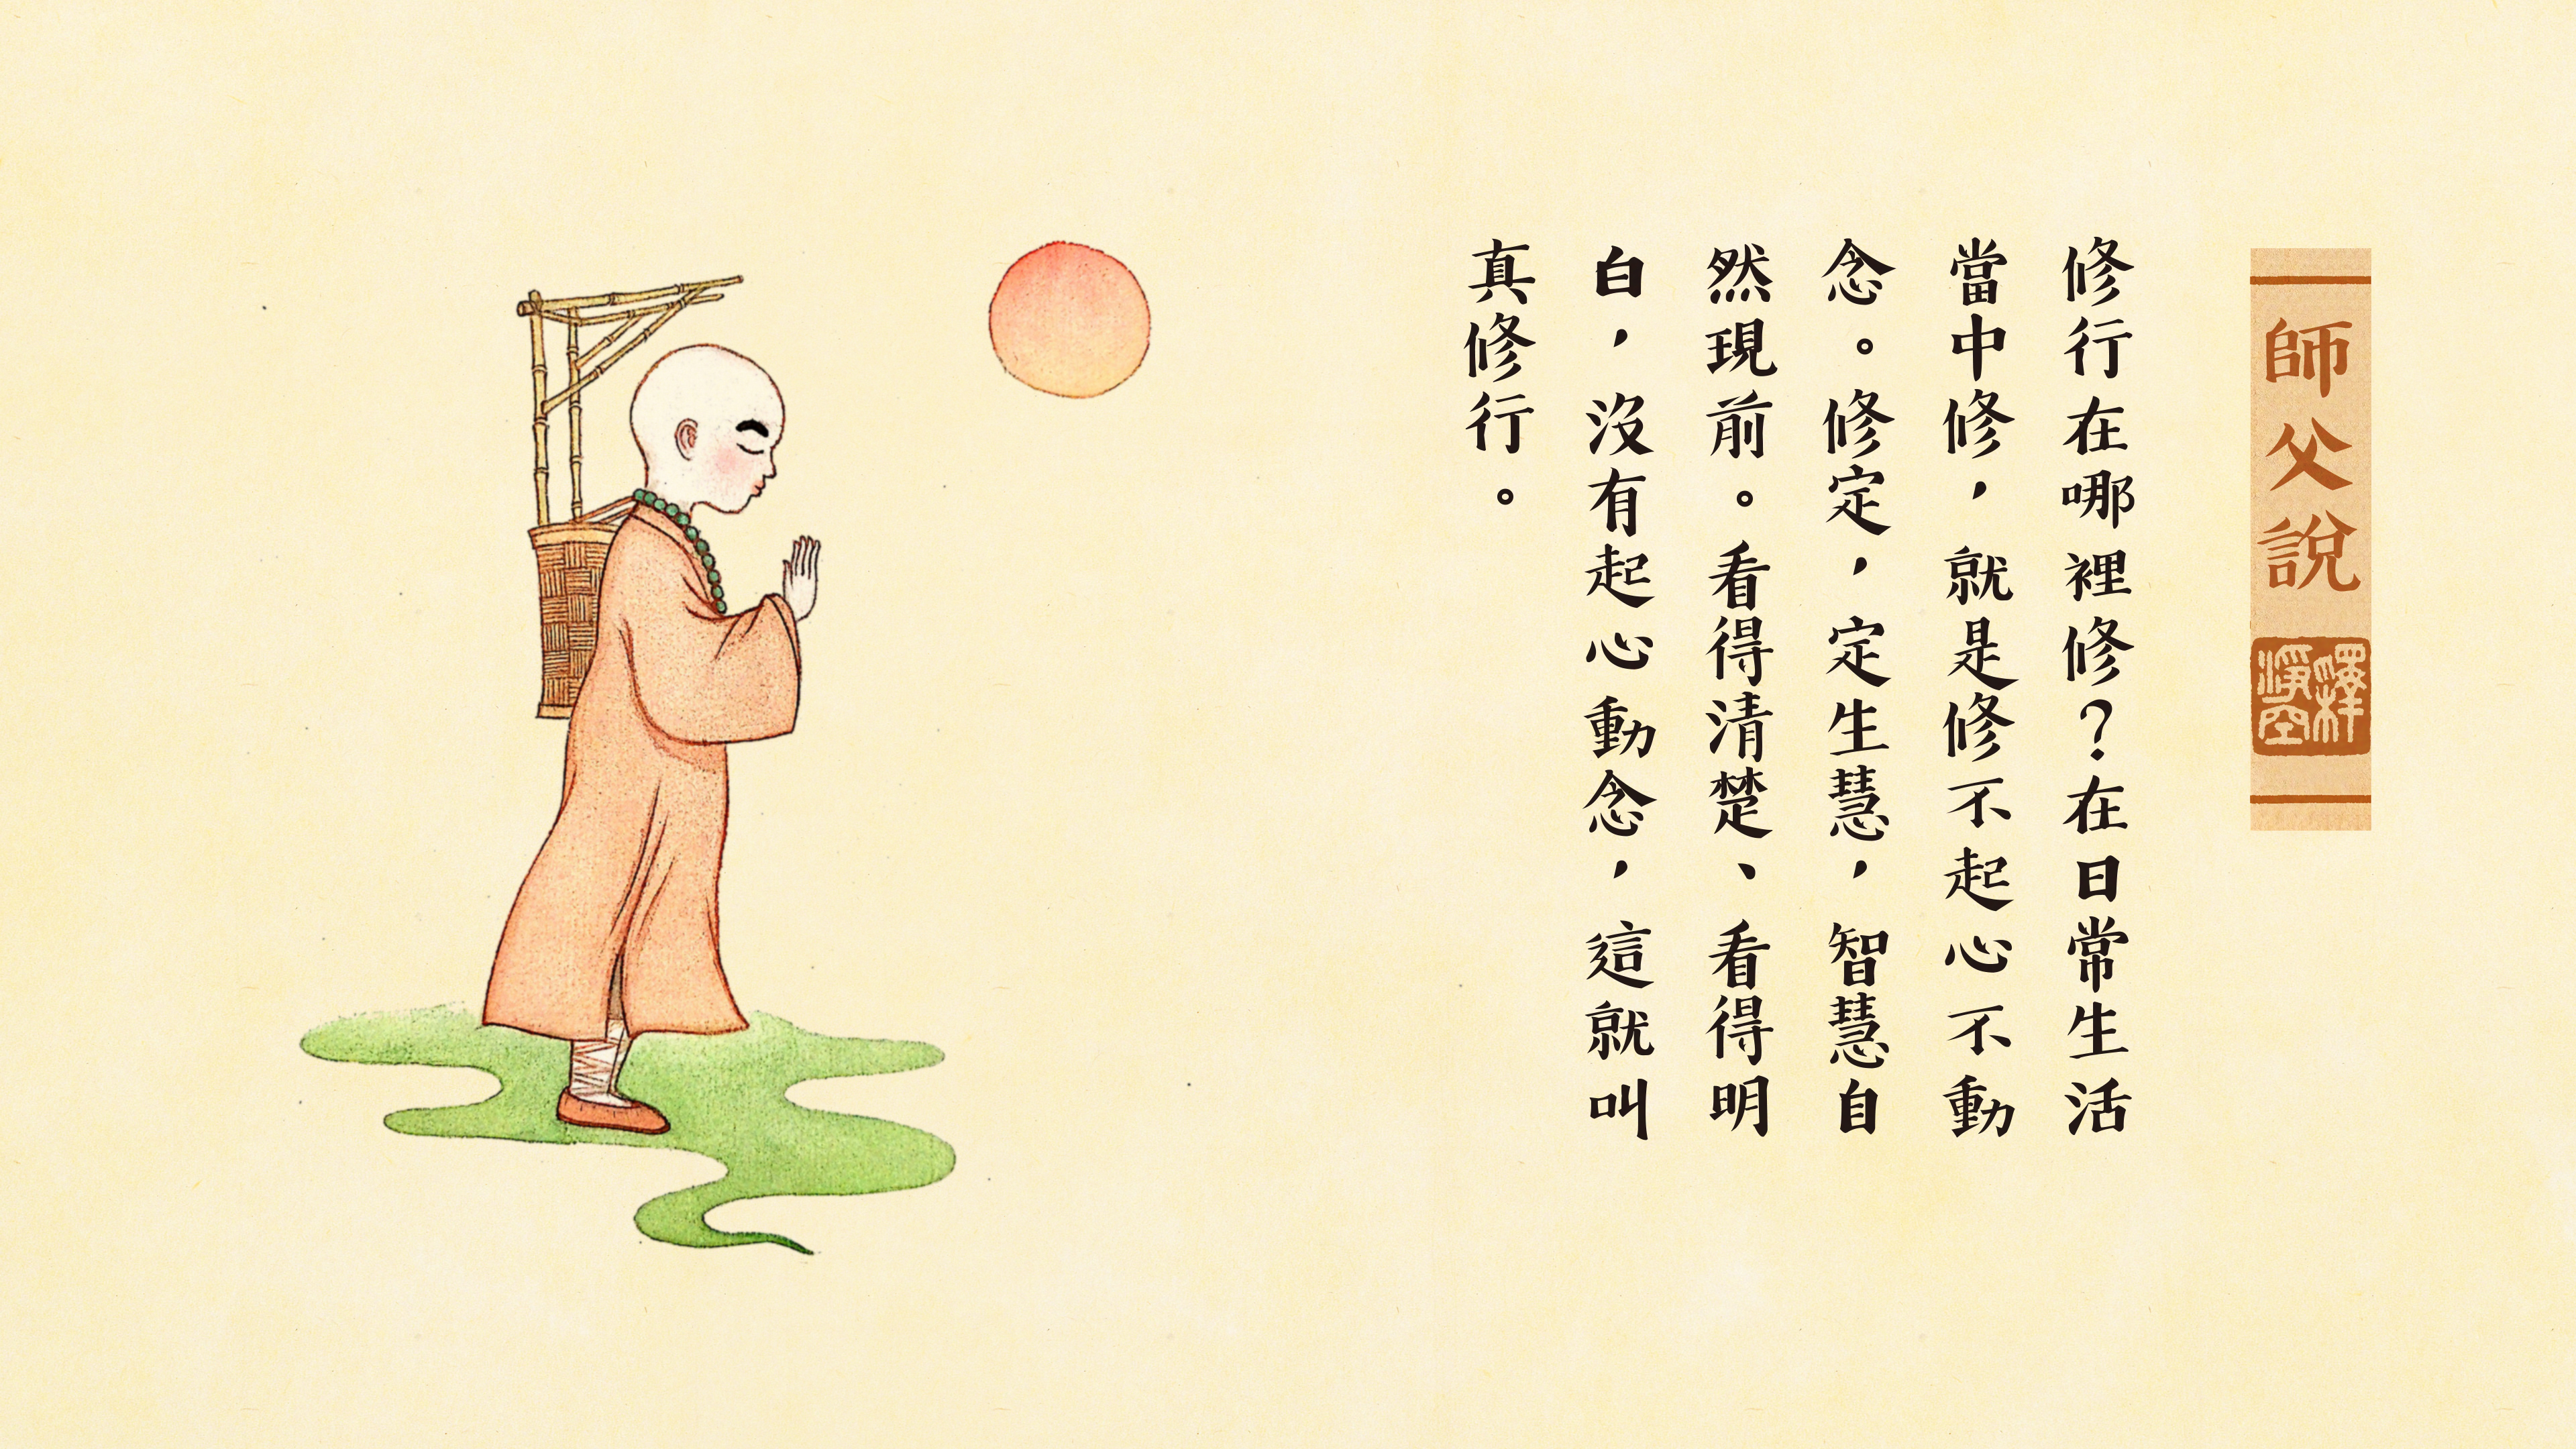 師父說
釋淨空
修行在哪裡修？在日常生活
當中修，就是修不起心不動
念。修定，定生慧，智慧自
然現前。看得清楚、看得明
白，沒有起心動念，這就叫
真修行。